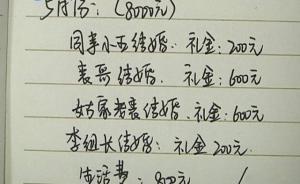 5月1号:(8000元)
同事小五结婚.礼金:200元
表哥结婚.礼金:600元
姑家老表结婚.礼金:600元
李组长结婚:礼金200元.
生活费:800元